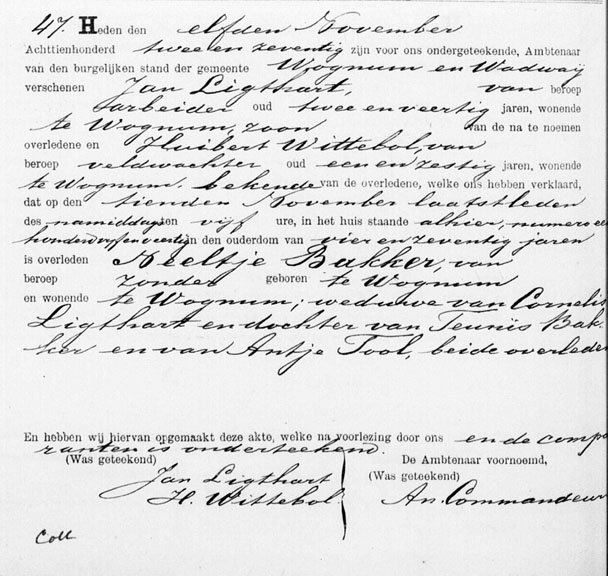 47. Heden den elfden November
Achttienhonderd twee en zeventig zijn voor ons ondergeteekende, Ambtenaar
van den burgelijken stand der gemeente Wognum en Wadway
verschenen Jan Ligthart, van beroep
arbeider oud twee en veertig jaren, wonende
te Wognum, zoon van de na te noemen
overledene en Huibert Wittebol, van
beroep veldwachter oud een en zestig jaren, wonende
te Wognum. bekende van de overledene, welke ons hebben verklaard,
dat op den tienden November laatstleden
des namiddags ten vijf ure, in het huis staande alhier, numero een
honderd vyf en veertig in den ouderdom van vier en zeventig jaren
is overleden Neeltje Bakker, van
beroep zonder geboren te Wognum
en wonende te Wognum; weduwe van Cornelis
Ligthart en dochter van Teunis Bak-
ker en van Antje Tool, beide overleden
En hebben wij hiervan opgemaakt deze akte, welke na voorlezing door ons en de compa
ranten is onderteekend.
(Was geteekend) De Ambtenaar voornoemd,
Jan Ligthart (Was geteekend)
H. Wittebol. An. Commandeur
Coll